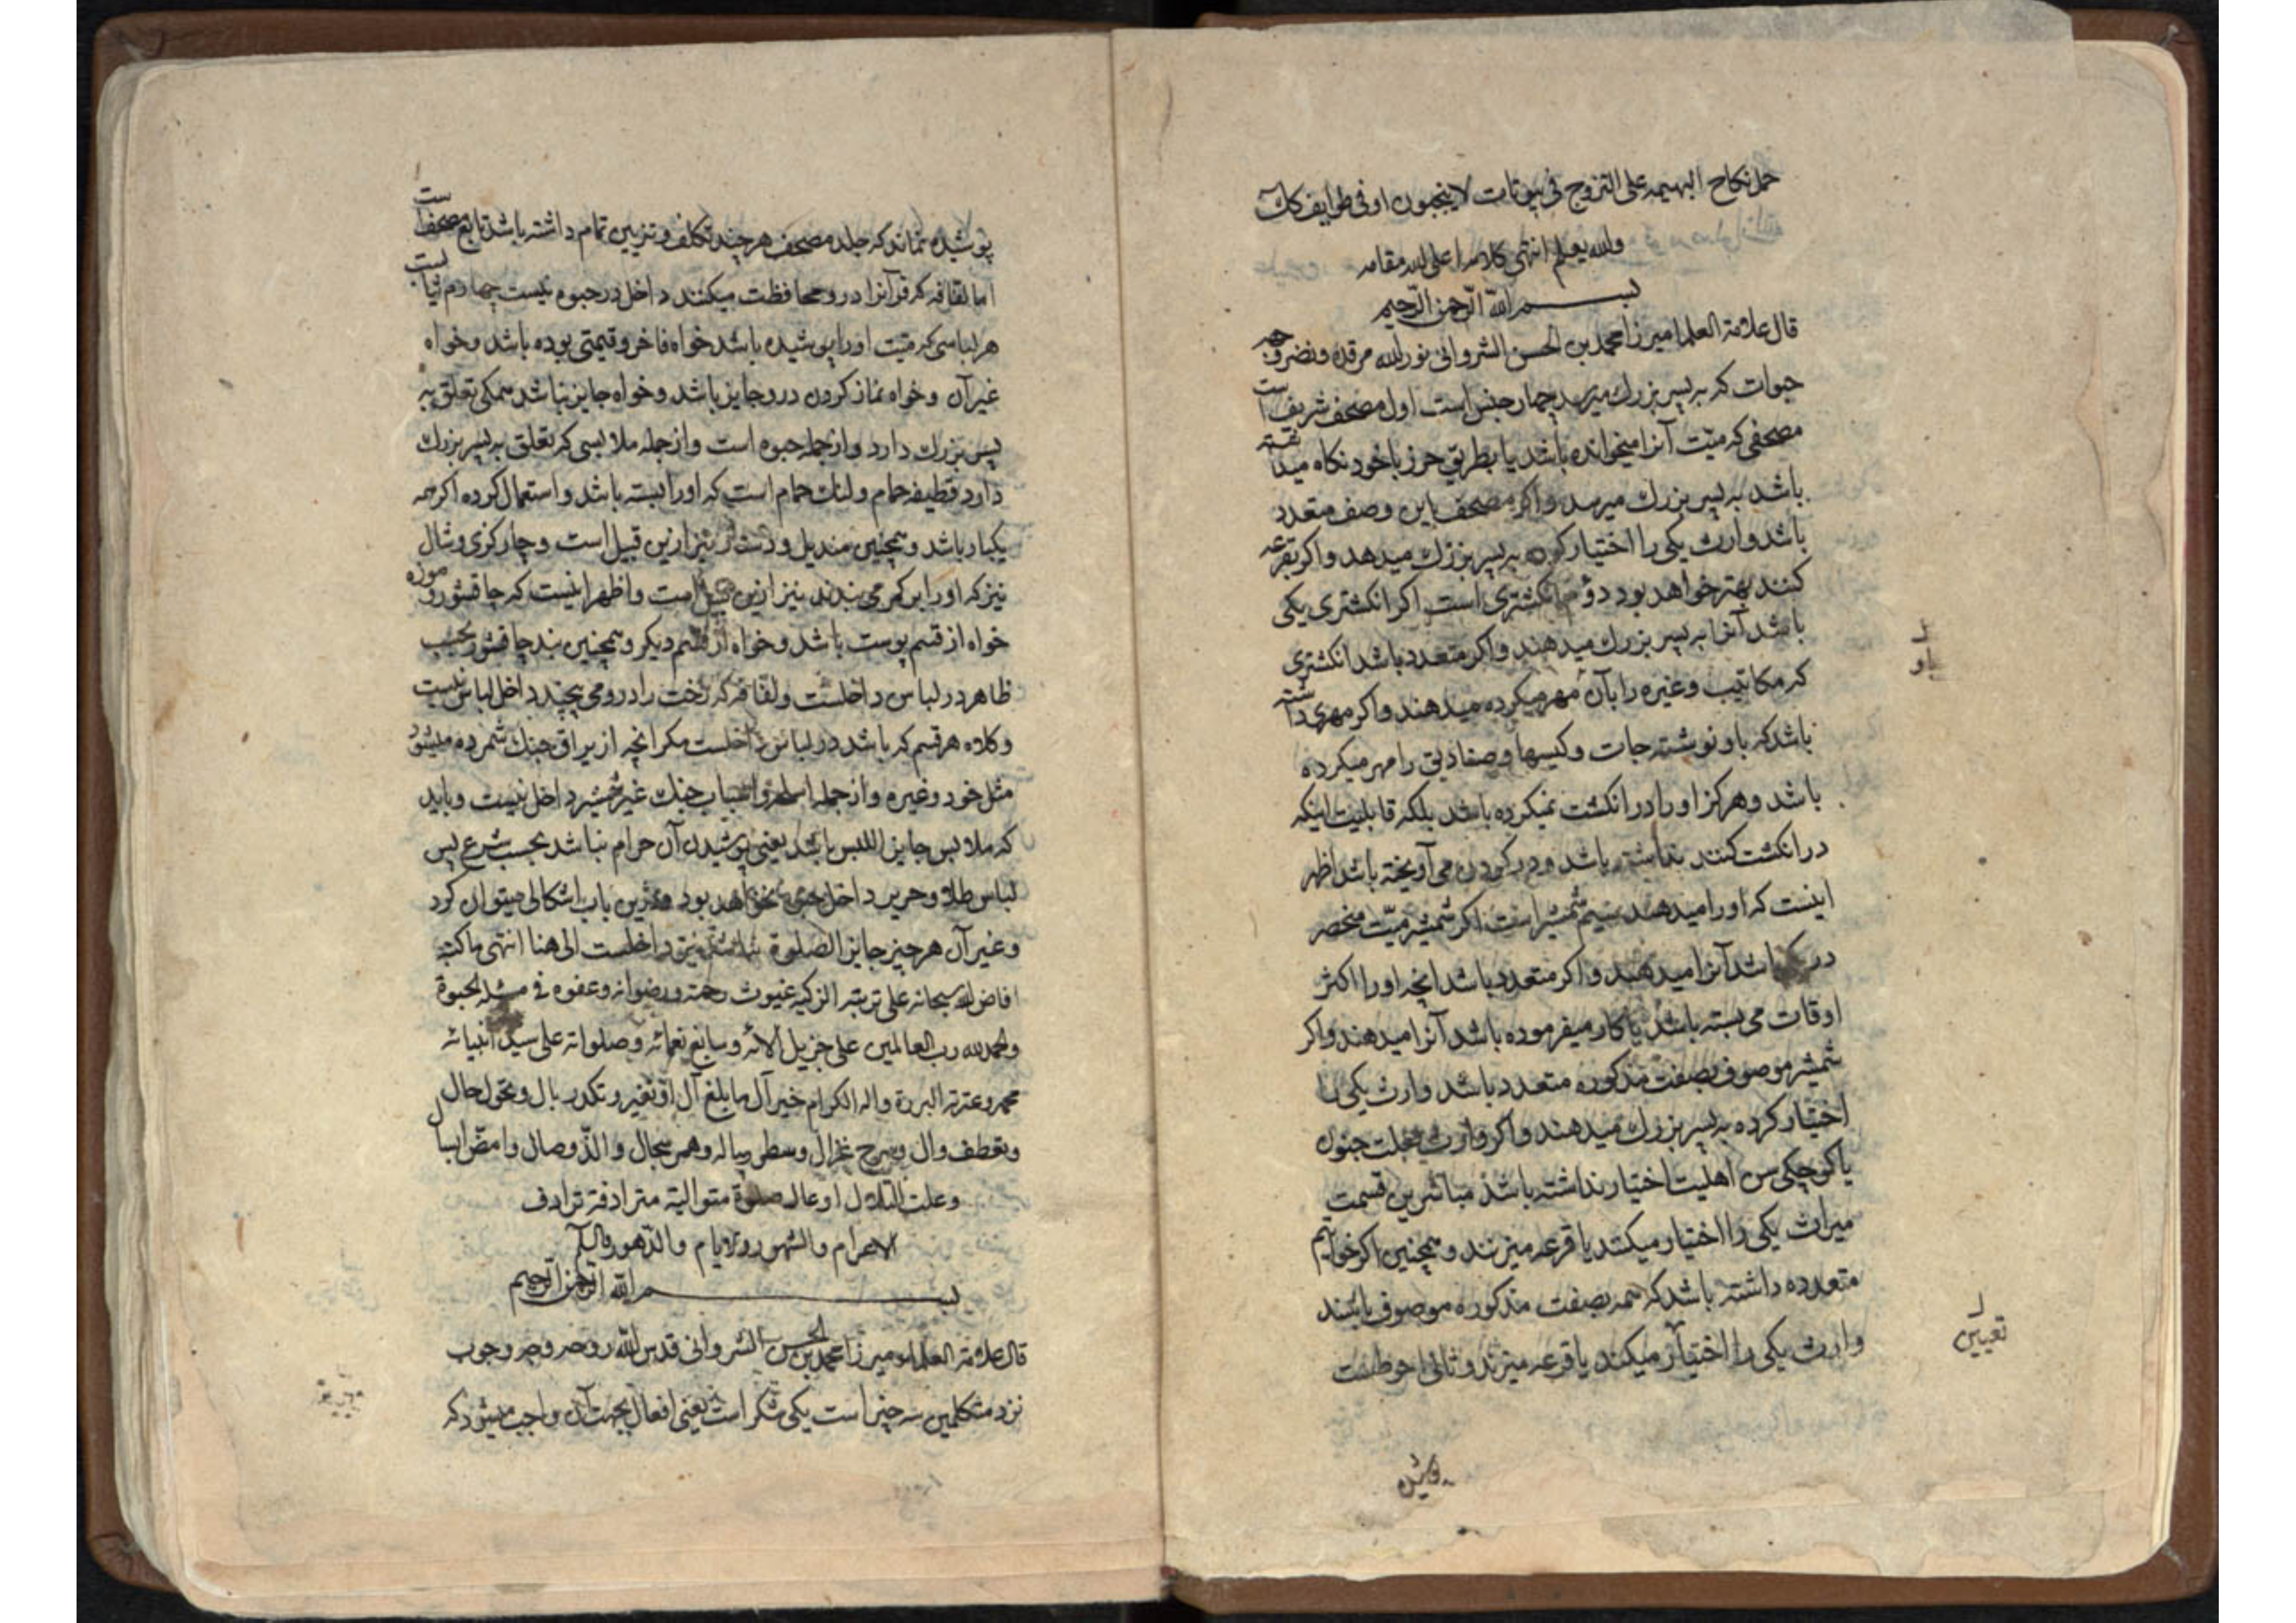 حمل نكاح البهيمه على التزوج فى بيوتات لا ينجبون او فى طرايف كك
والله يعلم انتهى كلامه اعلى الله مقامه
بسم الله الرحمن الرحيم
قال علامة العلما ميرزا محمد بن الحسن الشروانى نور الله مرقده ونضر وجهه
حبوات كه به پسر بزرك ميرسد چهار جنس است اول مصحف شريف است
مصحفى كه ميّت آنرا ميخوانده باشد يا بطريق حرز با خود نكاه ميداشته
باشد به پسر بزرك ميرسد واكر مصحف باين وصف متعدد
باشد وارث يكى را اختيار كرده به پسر بزرك ميدهد واكر بقرعه
كنند بهتر خواهد بود دوم انكشترى است اكر انكشترى يكى
باشد آنرا به پسر بزرك ميدهند واكر متعدد باشد انكشترى
كه مكاتيب وغيره را بآن مهر ميكرده ميدهند واكر مهرى داشته
باشد كه باو نوشته جات وكيسها وصناديق را مهر ميكرده
باشد وهركز او را در انكشت نميكرده باشد بلكه قابليت اينكه
در انكشت كنند نداشته باشد ودر كردن مى آويخته باشد اظهر
اينست كه او را ميدهند سيم شمشير است اكر شمشير ميّت منحصر
در باشد آنرا ميدهند واكر متعدد باشد انچه او را اكثر
اوقات مى بسته باشد يا كار ميفرموده باشد آنرا ميدهند واكر
شمشير موصوف بصفت مذكوره متعدد باشد وارث يكى را
اختيار كرده به پسر بزرك ميدهند واكر وارث بعلت جنون
يا كوچكى سن اهليت اختيار نداشته باشد مباشرين قسمت
ميراث يكى را اختيار ميكنند يا قرعه ميزنند وهمچنين اكر خواتيم
متعدده داشته باشد كه همه بصفت مذكوره موصوف باشند
وارث يكى را اختيار ميكند يا قرعه ميزند وثانى احوطست
پوشيده
پوشيده نماند كه جلد مصحف هر چند تكلف وتزيين تمام داشته باشد تابع مصحف است
اما لفافه كه قرآنرا درو محافظت ميكنند داخل در حبوه نيست چهارم ثياب است
هر لباسى كه ميّت او را پوشيده باشد خواه فاخر وقيمتى بوده باشد وخواه
غير آن وخواه نماز كردن درو جايز باشد وخواه جايز نباشد همكى تعلق به
پسر بزرك دارد واز جمله حبوه است واز جمله ملابسى كه تعلق به پسر بزرك
دارد قطيفه حمام ولنك حمام است كه او را بسته باشد واستعمال كرده اكرچه
يكبار باشد وهمچنين منديل ودستار نيز ازين قبيل است وچاركزى وشال
نيز كه او را بر كمر مى بندند نيز ازين قبيل است واظهر اينست كه چاقشور وموزه
خواه از قسم پوست باشد وخواه از قسم ديكر وهمچنين بند چاقشور بحسب
ظاهر در لباس داخلست ولفافه كه رخت را درو مى پيچند داخل لباس نيست
وكلاه هر قسم كه باشد در لباس داخلست مكر انچه از يراق جنك شمرده ميشود
مثل خود وغيره واز جمله اسلحه واسباب جنك غير شمشير داخل نيست وبايد
كه ملابس جايز اللبس باشد يعنى پوشيدن آن حرام نباشد بحسب شرع پس
لباس طلا وحرير داخل حبوه نخواهد بود ودرين باب اشكالى ميتوان كرد
وغير آن هر چيز جايز الصلوة نباشد نيز داخلست الى هنا انتهى ما كتبه
افاض الله سبحانه على تربته الزكيه غيوث رحمته ورضوانه وعفوه فى مسئلة الحبوة
والحمد لله رب العالمين على جزيل آلائه وسابغ نعمائه وصلواته على سيد انبيائه
محمد وعترته البررة واله الكرام خير آل ما بلغ آل او تغير وتكدر بال وتحول حال
وتعطف وال وسرح غزال وسطر رساله وهمر سجال والذ وصال وامض
وعلت التلال اوعال صلوة متوالية مترادفة ترادف
الاعوام والشهور والايام والدهور
بسم الله الرحمن الرحيم
قال علامة العلماء ميرزا محمد بن الحسن الشروانى قدس الله روحه وجه وجوب
نزد متكلمين سه چيز است يكى شكر است يعنى افعال بجهت آن واجب ميشود كه